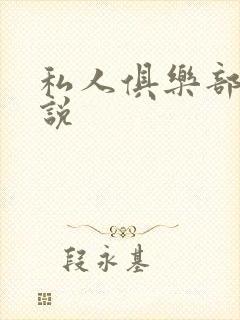 私人俱樂部
說
段永基